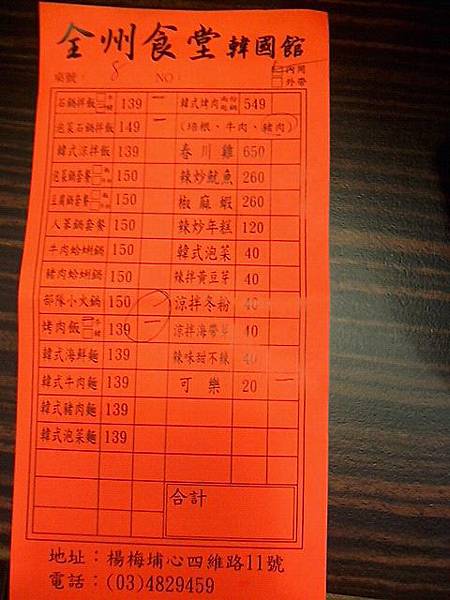 全州食堂 韓國館
桌號： 8 NO： 內用
外帶
石鍋拌飯 139 一 韓式烤肉 549
泡菜石鍋拌飯 149 一 (培根、牛肉、豬肉)
韓式涼拌飯 139 春川雞 650
泡菜鍋套餐 150 辣炒魷魚 260
豆腐鍋套餐 150 椒麻蝦 260
人蔘鍋套餐 150 辣炒年糕 120
牛肉蛤蜊鍋 150 韓式泡菜 40
豬肉蛤蜊鍋 150 辣拌黃豆芽 40
部隊小火鍋 150 涼拌冬粉 40
烤肉飯 牛 豬 139 一 涼拌海帶芽 40
韓式海鮮麵 139 辣味甜不辣 40
韓式牛肉麵 139 可樂 20 一
韓式豬肉麵 139
韓式泡菜麵 139
合計
地址：楊梅埔心四維路11號
電話：(03)4829459